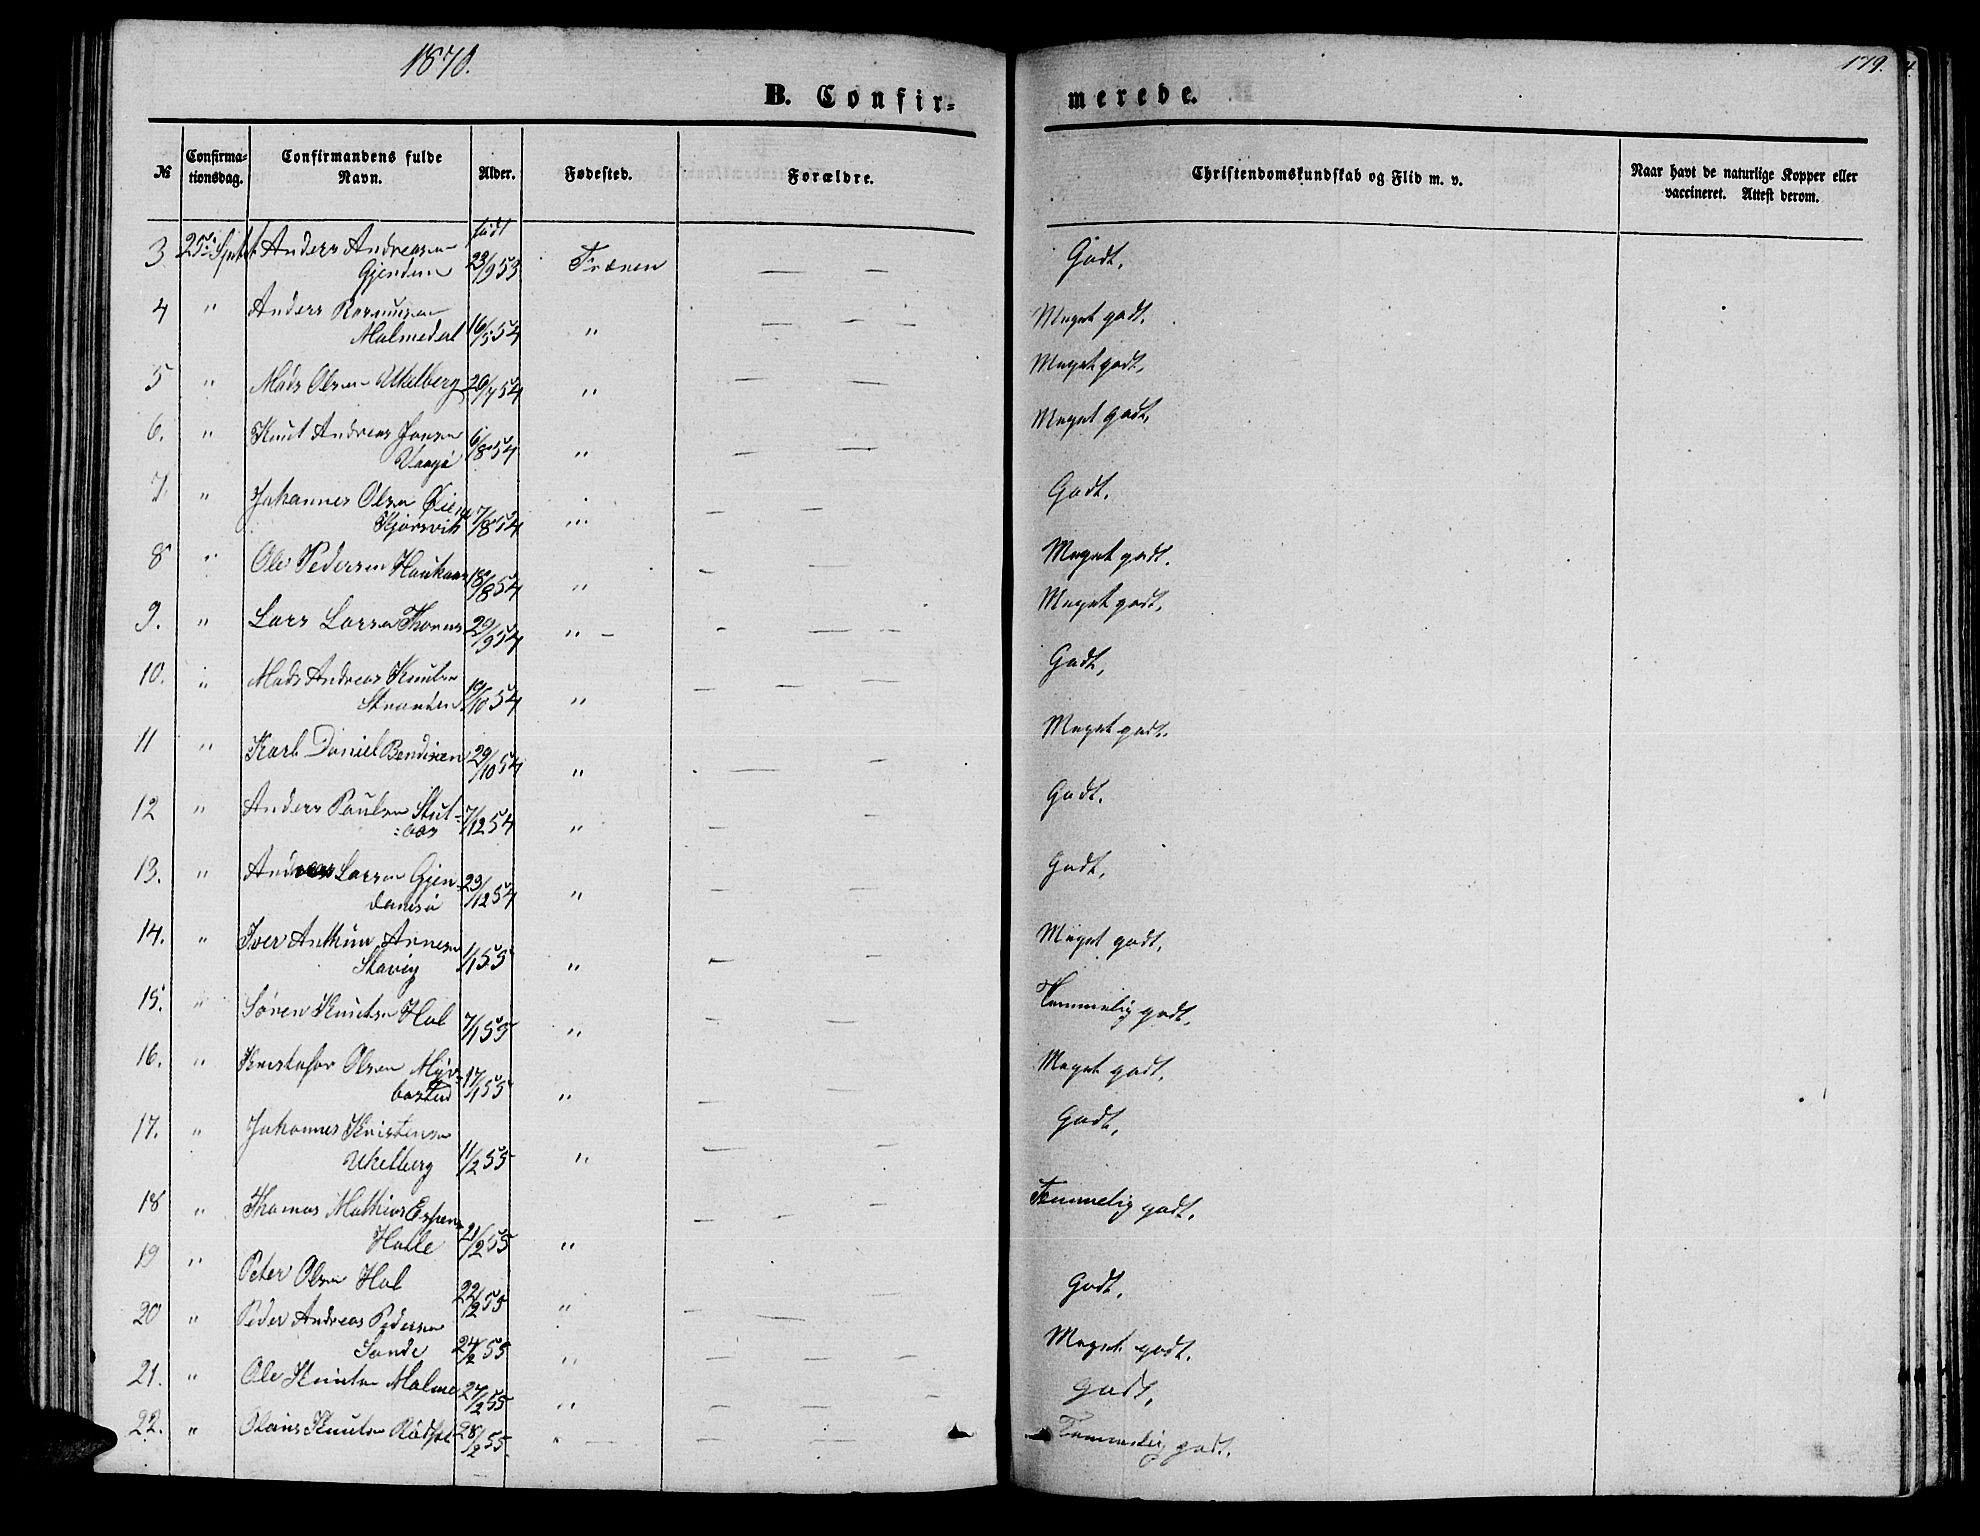 1870.
179.
B. Confir-
merede.
№
Confirma-
tionsdag.
Confirmandens fulde
Navn.
Alder.
Fødested.
Forældre.
Christendomskundskab og Flid m. v.
Naar havt de naturlige Kopper eller
vaccineret. Attest derom.
født
3. 25de Septbr Anders Andreasen
Gjendem 23/9 53 Frænen — — Godt.
4 " Anders Rasmusen
Malmedal 16/5 54 " — — — Meget godt.
5 " Mads Olsen Ukelberg 26/7 54 " — — Meget godt.
6. " Knut Andreas Jonsen
Vaagø 6/8 54 " — — Meget godt.
7. " Johannes Olsen Øien
Kjørsvik 7/8 54 " — — Godt.
8 " Ole Pedersen Haukaas 18/8 54 " — — Meget godt.
9. " Lars Larsen Thornes 29/9 54 " — - — — Meget godt.
10. " Mads Andreas Knutsen
Stranden 19/10 54 " — — — Godt,
11 " Karl Daniel Bendixen 29/10 54 " — — Meget godt.
12 " Anders Paulsen Stut-
:aas 7/12 54 " — — Godt.
13. " Andreas Larsen Gjen-
damsø 23/12 54 " — — Godt,
14. " Iver Anthon Arnesen
Stavig 1/1 55 " — — Meget godt,
15. " Søren Knutsen Hol 7/1 55 " — — Temmelig godt.
16. " Kristofor Olsen Myr-
bostad 17/1 55 " — — Meget godt,
17. " Johannes Kristensen
Ukelberg 11/2 55 " — — Godt,
18 " Thomas Mathias Espens
Halle 21/2 55 " — — — Temmelig godt.
19 " Peter Olsen Hol 22/2 55 " — — — Godt.
20 " Peder Andreas Pedersen
Sande 24/2 55 " — — — Meget godt.
21. " Ole Knutsen Malme 27/2 55 " — — — Godt,
22. " Olaus Knutsen 28/2 55. " — — — Temmelig godt.